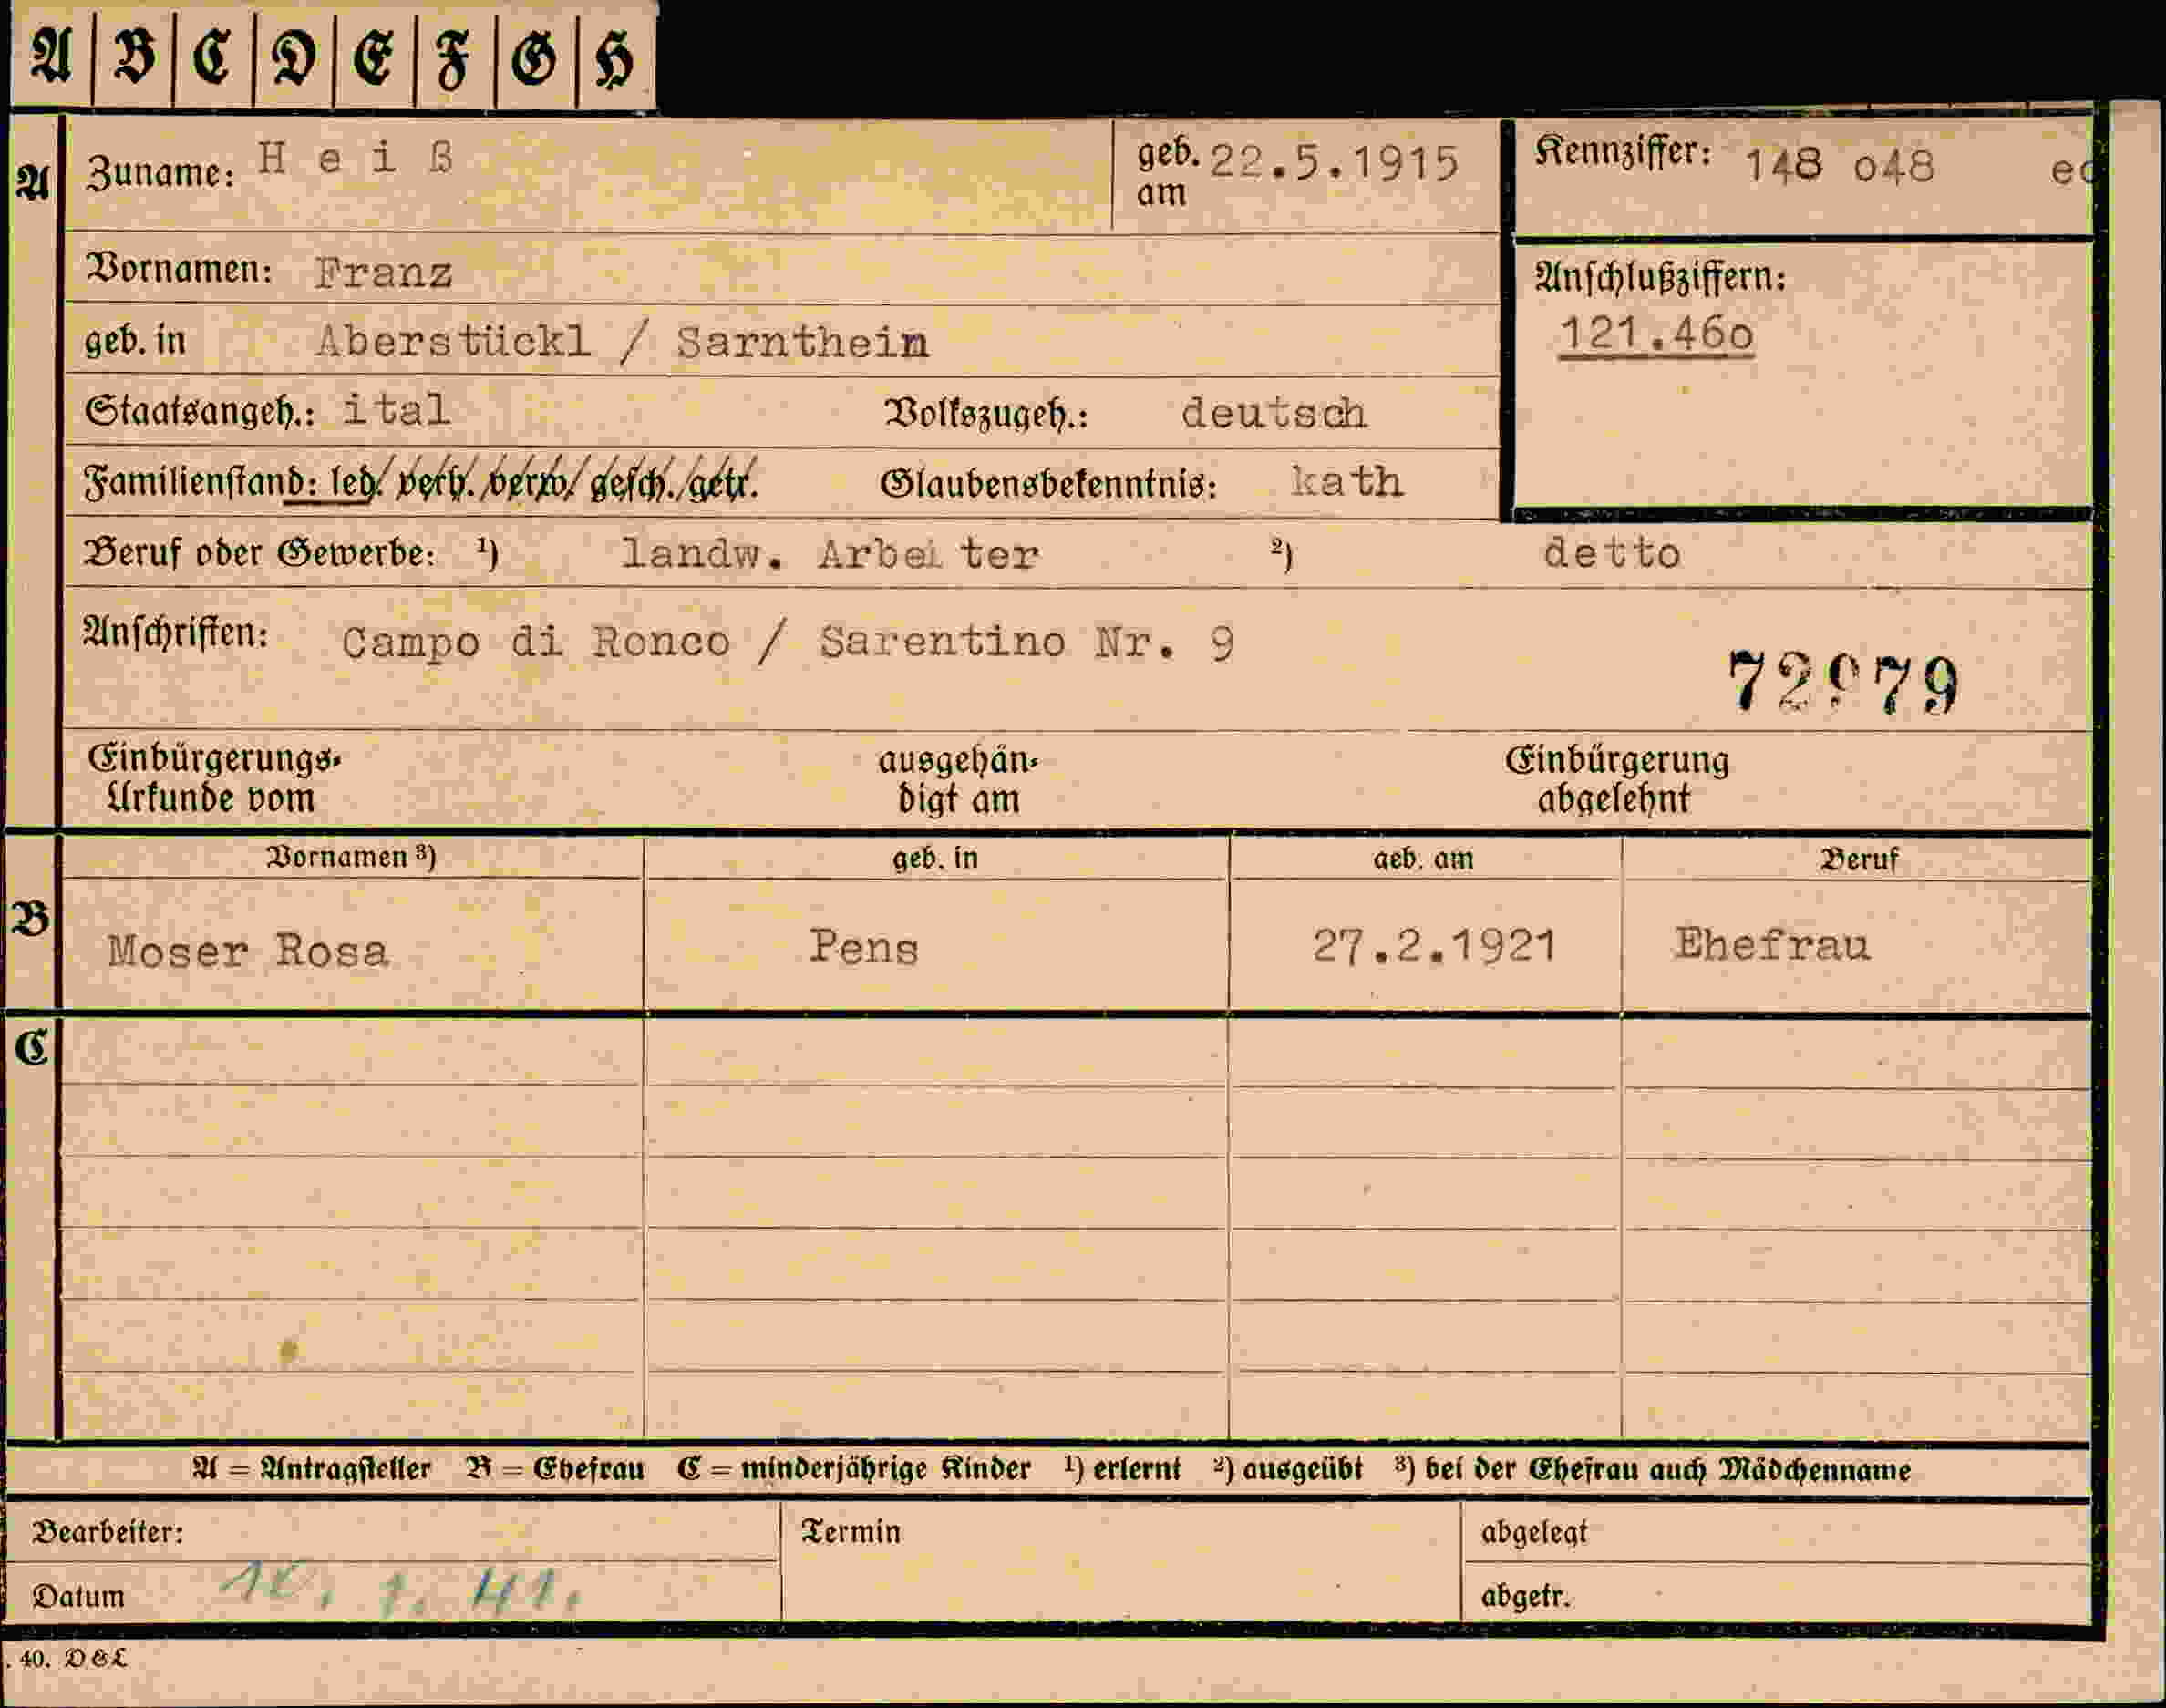 A B C D E F G H
A Zuname: H e i ß geb. am 22.5.1915 Kennziffer: 148 o48
Vornamen: Franz
Anschlußziffern:
geb. in Aberstückl / Sarnthein 121.46o
Staatsangeh.: ital Volkszugeh.: deutsch
Familienstand: led./verh./verw./gesch./getr. Glaubensbekenntnis: kath
Beruf oder Gewerbe: ¹) landw. Arbei ter ²) detto
Anschriften: Campo di Ronco / Sarentino Nr. 9
Einbürgerungs- ausgehän- Einbürgerung
Urkunde vom digt am abgelehnt
Vornamen ³) geb. in geb. am Beruf
B
Moser Rosa Pens 27.2.1921 Ehefrau
C
A = Antragsteller B = Ehefrau C = minderjährige Kinder ¹) erlernt ²) ausgeübt ³) bei der Ehefrau auch Mädchenname
Bearbeiter: Termin abgelegt
Datum 10. 1. 41. abgetr.
. 40. D & L